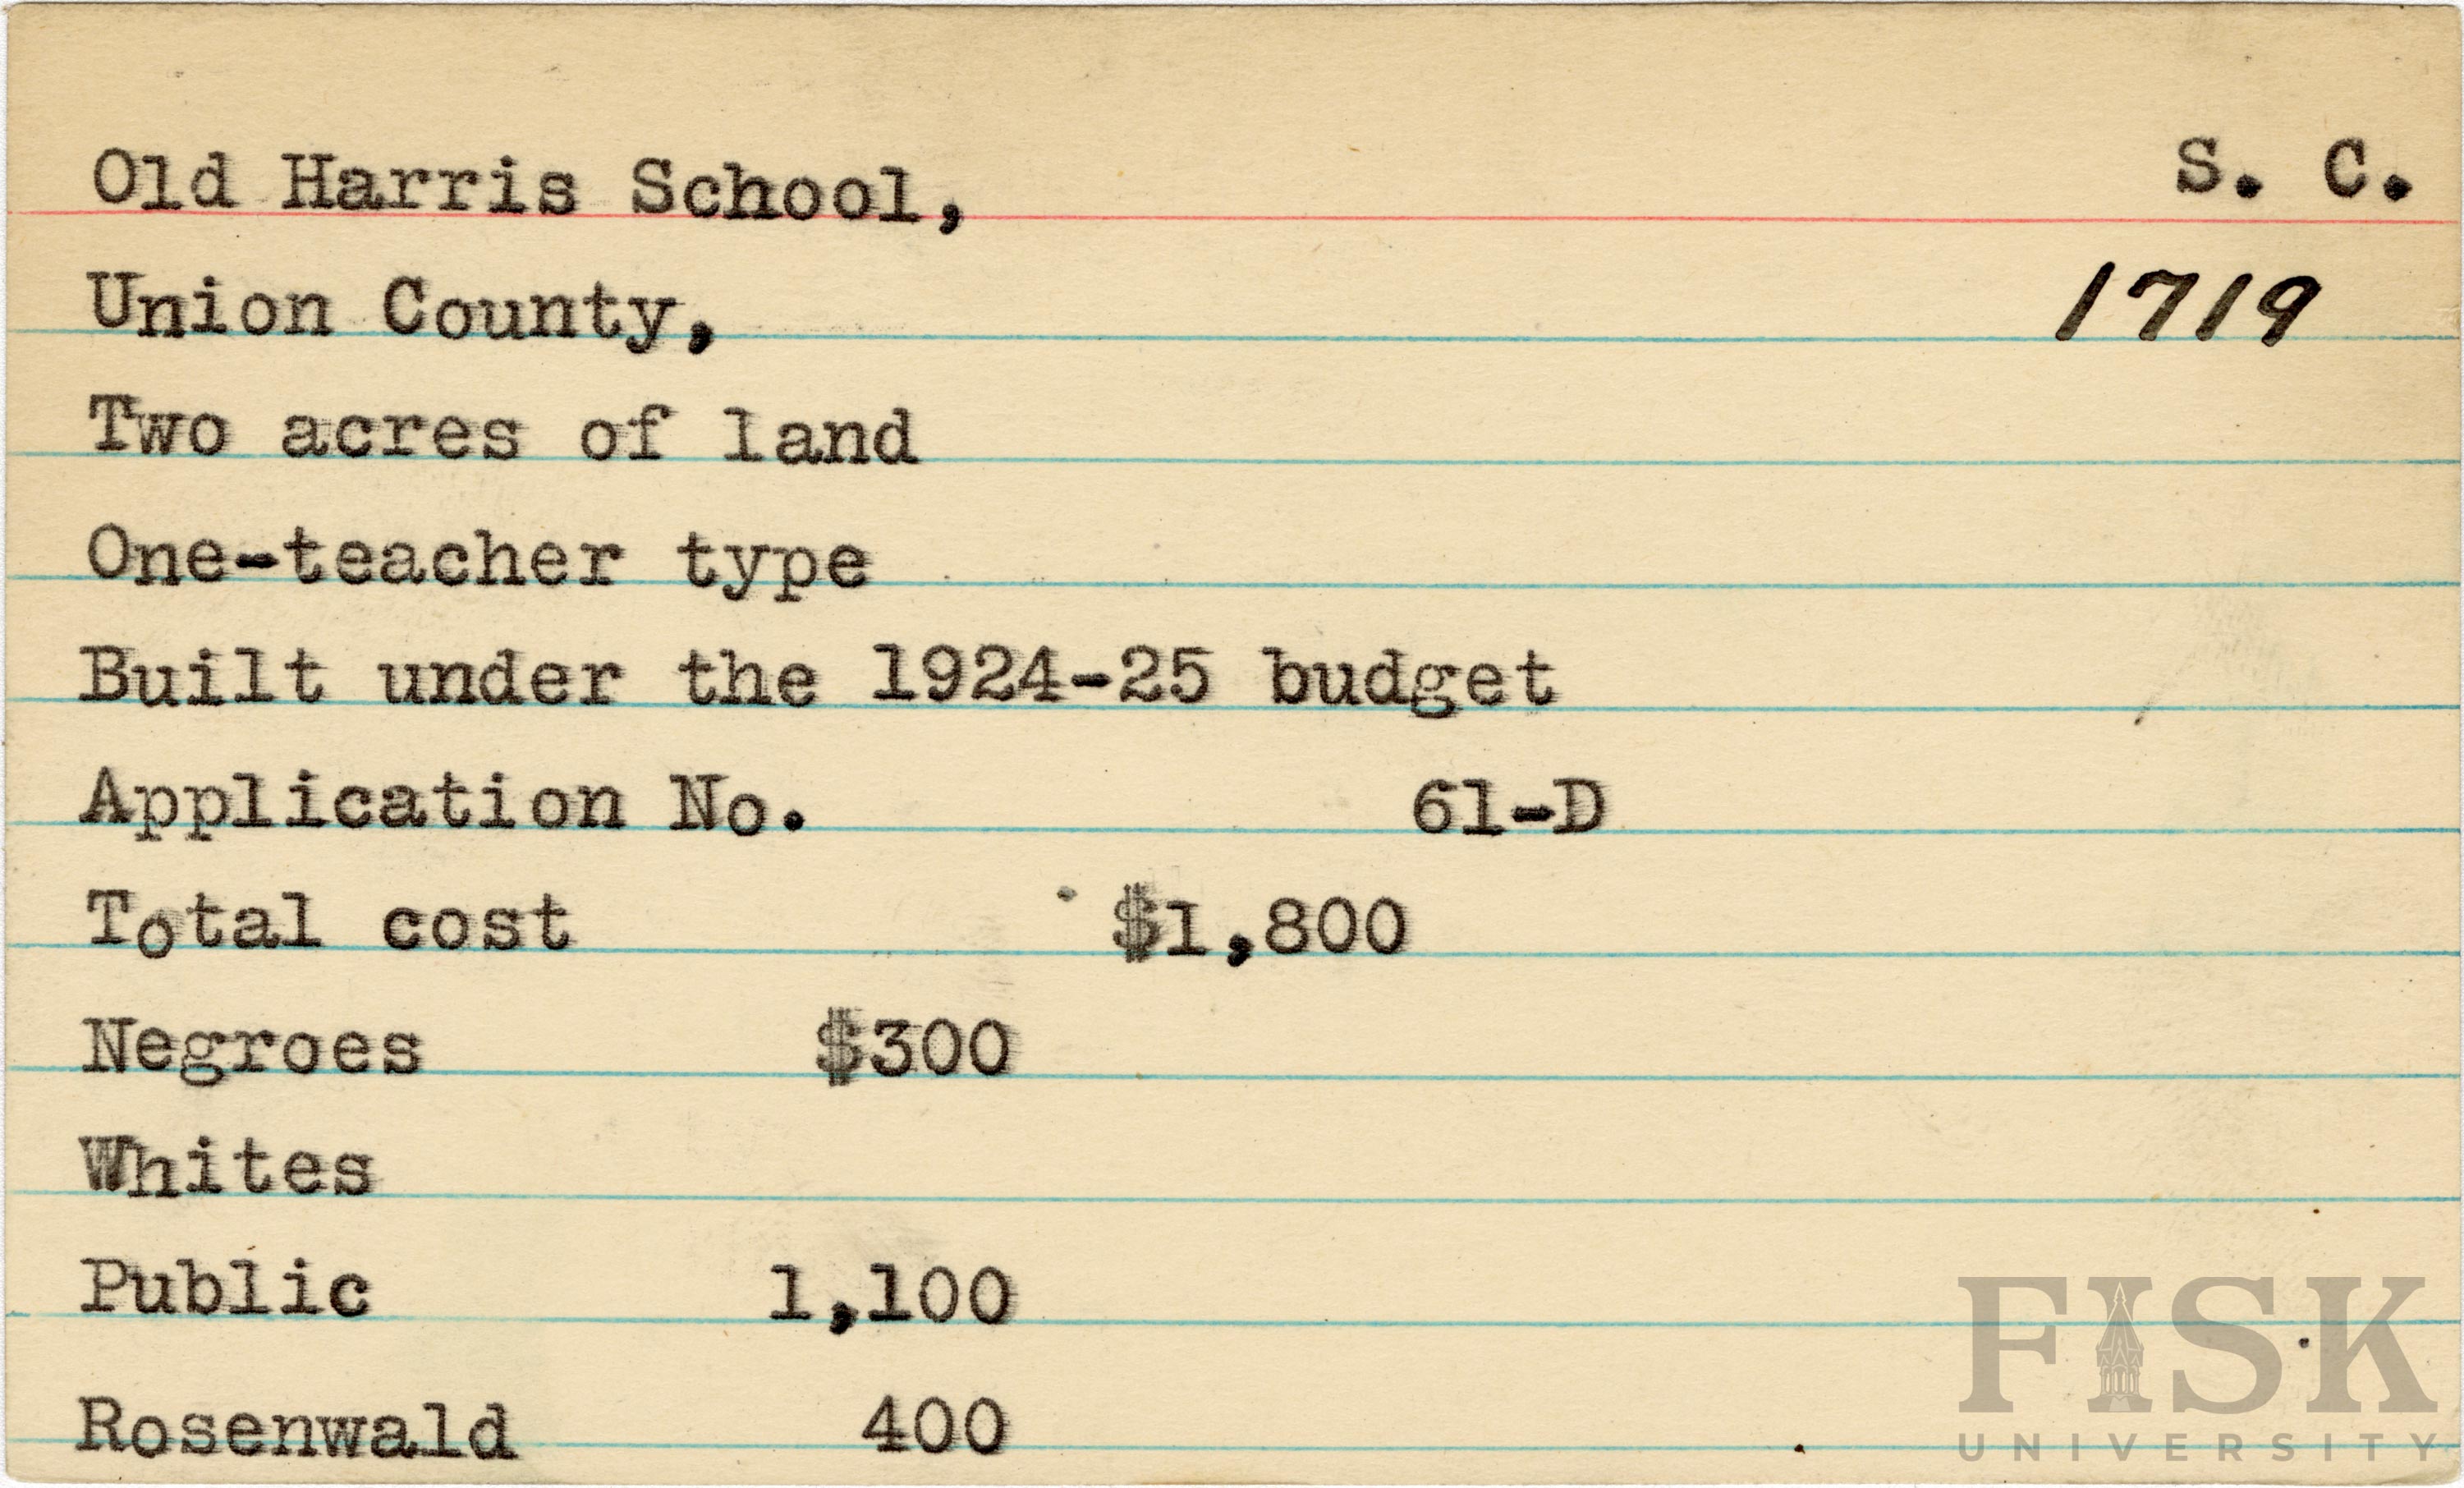 Old Harris School, S. C.
Union County, 1719
Two acres of land
One-teacher type
Built under the 1924-25 budget
Application No. 61-D
Total cost $1,800
Negroes $300
Whites
Public 1,100
Rosenwald 400
FISK
UNIVERSITY